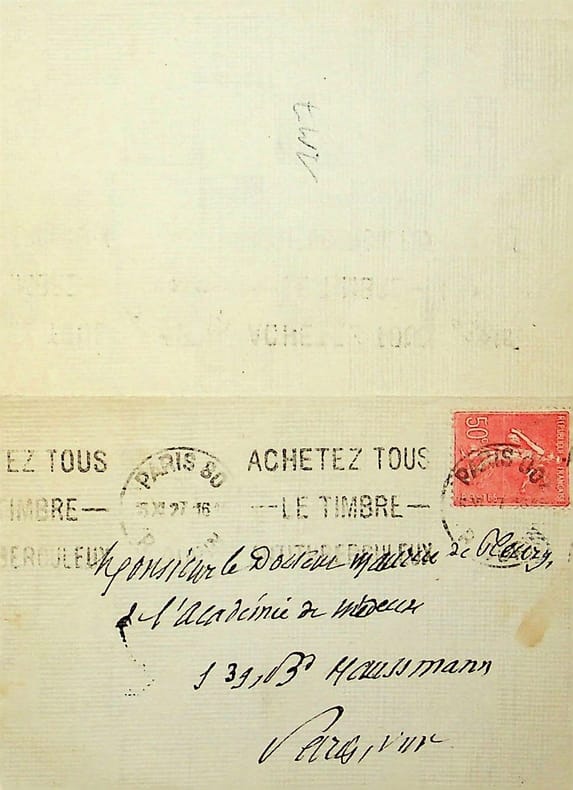 EZ TOUS
TIMBRE—
PARIS 80
XI 27-16
ACHETEZ TOUS
—LE TIMBRE—
50c
REPUBLIQUE FRANCAISE
PARIS 80
Monsieur le Docteur Maurice de Fleury,
de l'Académie de médecine
139, Bd Haussmann
Paris, VIII